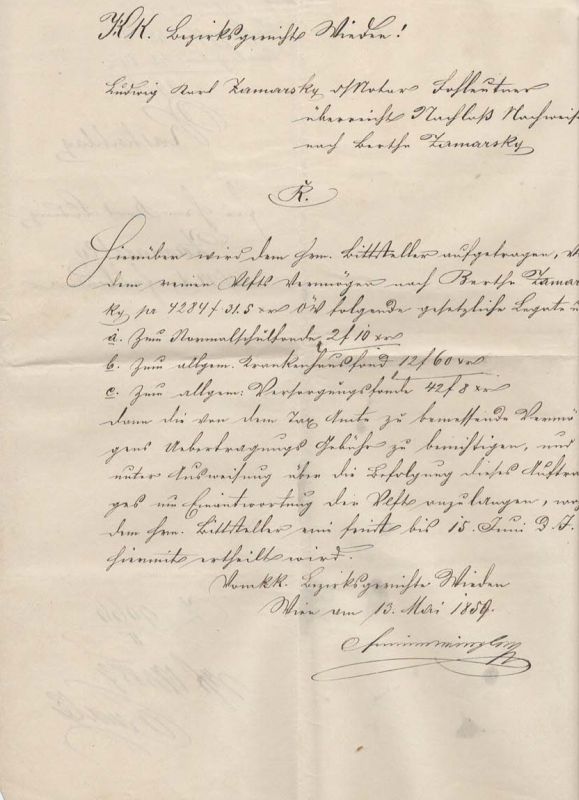 KK. Bezirksgericht Wieden!
Ludwig Karl Zamarsky Notar
überreicht Nachlaß Nachweis
nach Bertha Zamarsky
R.
Hierüber wird dem Hrn. Bittsteller aufgetragen, v
dem reinen Vlfts Vermögen nach Bertha Zamars
ky pr 4284 f 31.5 xr ÖW folgende gesetzliche Legate u
a. Zum Normalschulfonde 2 f 10 xr
b. Zum allgem. Krankenhausfond 12 f 60 xr
c. Zum allgem: Versorgungsfonde 42 f 8 xr
dann die von dem Tax Amte zu bemessende Vermö
gens Uebertragungs Gebühr zu berichtigen, und
unter Ausweisung über die Befolgung dieses Auftra
ges um Einantwortung der Vlft anzulangen, wo
dem Hrn. Bittsteller eine Frist bis 15. Juni d. J.
hiermit ertheilt wird.
Vom kk. Bezirksgerichte Wieden
Wien am 13. Mai 1859.